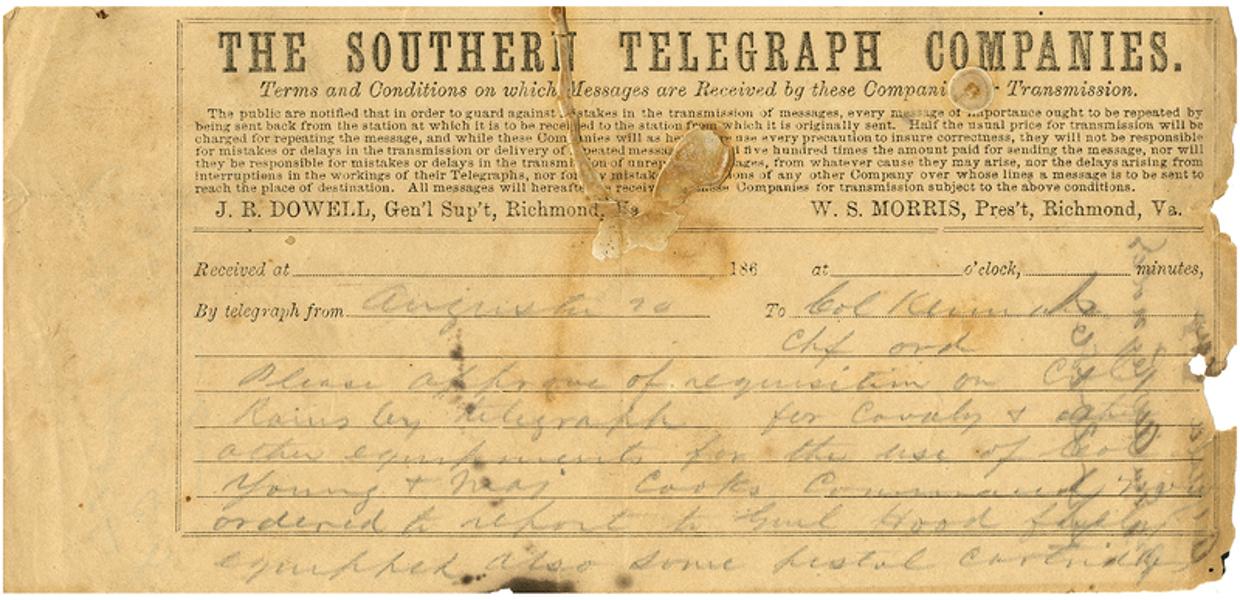 THE SOUTHERN TELEGRAPH COMPANIES.
Terms and Conditions on which Messages are Received by these Compani r Transmission.
The public are notified that in order to guard against stakes in the transmission of messages, every message of importance ought to be repeated by
being sent back from the station at which it is to be received to the station from which it is originally sent. Half the usual price for transmission will be
charged for repeating the message, and while these Companies will as he use every precaution to insure correctness, they will not be responsible
for mistakes or delays in the transmission or delivery of repeated messa d five hundred times the amount paid for sending the message, nor will
they be responsible for mistakes or delays in the transmission of unrep ages, from whatever cause they may arise, nor the delays arising from
interruptions in the workings of their Telegraphs, nor for any mistak ions of any other Company over whose lines a message is to be sent to
reach the place of destination. All messages will hereafter be receiv these Companies for transmission subject to the above conditions.
J. R. DOWELL, Gen'l Sup't, Richmond, Va W. S. MORRIS, Pres't, Richmond, Va.
Received at 186 at o'clock, minutes,
By telegraph from Augusta 20 To Col
Chf ord
Please approve of requisition on Col
Rains by telegraph for Cavalry &
other equipments for the use of Col
Young & Maj Cooks Command now
ordered to report to Genl Hood
equipped also some pistol cartridges